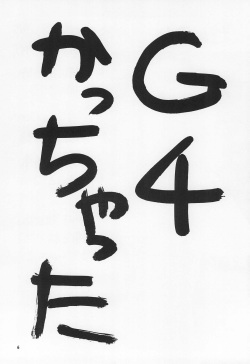 G4
かっちゃった